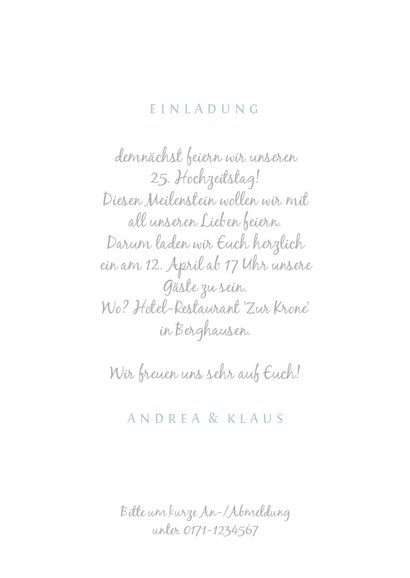 EINLADUNG
demnächst feiern wir unseren
25. Hochzeitstag!
Diesen Meilenstein wollen wir mit
all unseren Lieben feiern.
Darum laden wir Euch herzlich
ein am 12. April ab 17 Uhr unsere
Gäste zu sein.
Wo? Hotel-Restaurant 'Zur Krone'
in Berghausen.
Wir freuen uns sehr auf Euch!
ANDREA & KLAUS
Bitte um kurze An-/Abmeldung
unter 0171-1234567